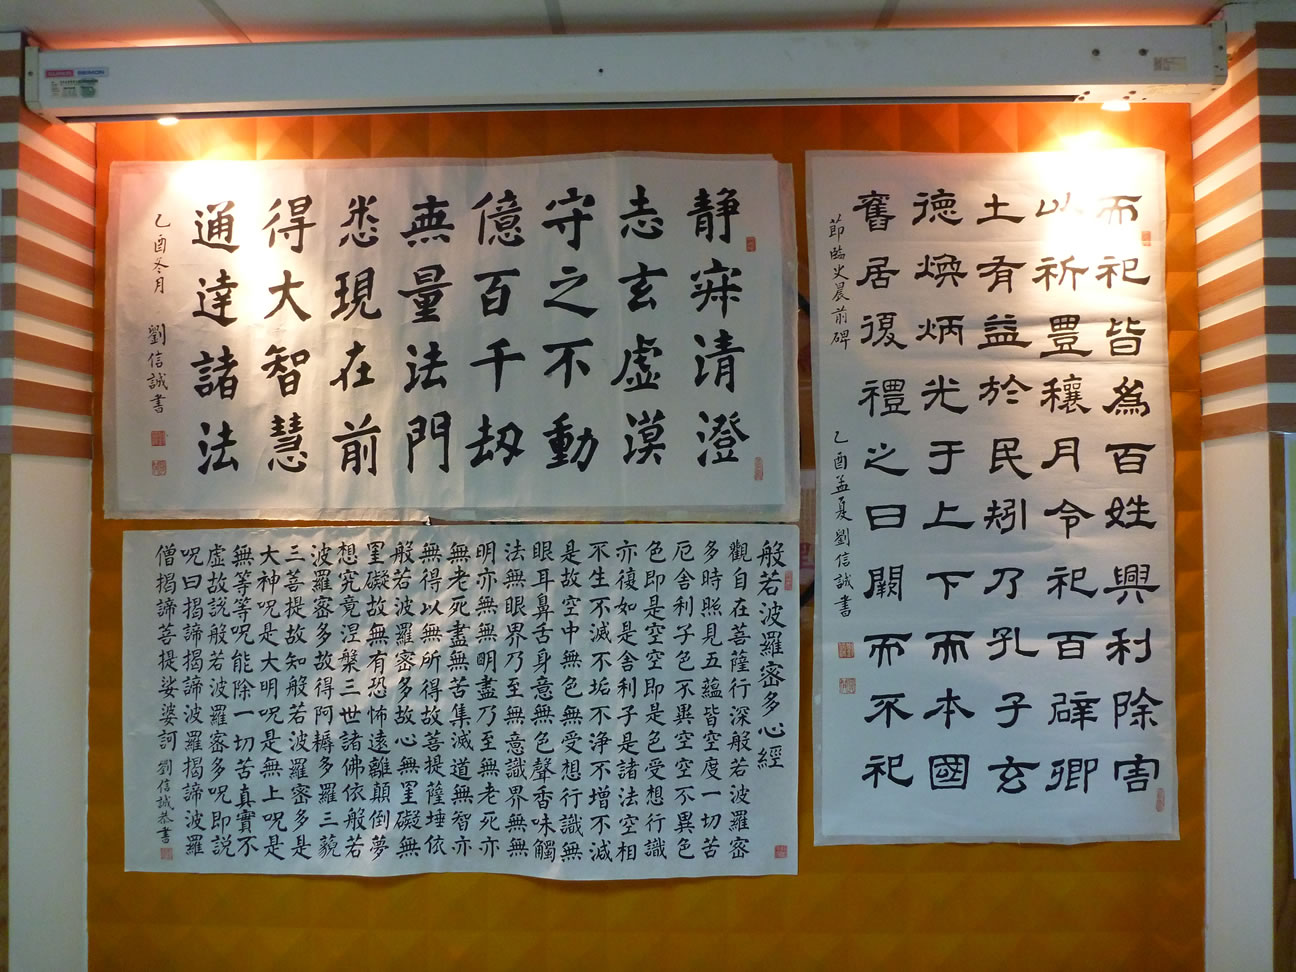 静寂清澄
志玄虚漠
守之不動
億百千劫
無量法門
悉現在前
得大智慧
通達諸法
乙酉冬月 劉信誠書
而祀皆為百姓興利除害
以祈豊穰月令祀百辟卿
土有益於民矧乃孔子玄
德煥炳光于上下而本國
舊居復禮之日闕而不祀
節臨史晨前碑 乙酉孟夏劉信誠書
般若波羅密多心經
觀自在菩薩行深般若波羅密
多時照見五蘊皆空度一切苦
厄舍利子色不異空空不異色
色即是空空即是色受想行識
亦復如是舍利子是諸法空相
不生不滅不垢不浄不增不減
是故空中無色無受想行識無
眼耳鼻舌身意無色聲香味觸
法無眼界乃至無意識界無無
明亦無無明盡乃至無老死亦
無老死盡無苦集滅道無智亦
無得以無所得故菩提薩埵依
般若波羅密多故心無罣礙無
罣礙故無有恐怖遠離顛倒夢
想究竟涅槃三世諸佛依般若
波羅密多故得阿耨多羅三藐
三菩提故知般若波羅密多是
大神呪是大明呪是無上呪是
無等等呪能除一切苦真實不
虛故説般若波羅密多呪即説
呪曰揭諦揭諦波羅揭諦波羅
僧揭諦菩提娑婆訶 劉信誠恭書